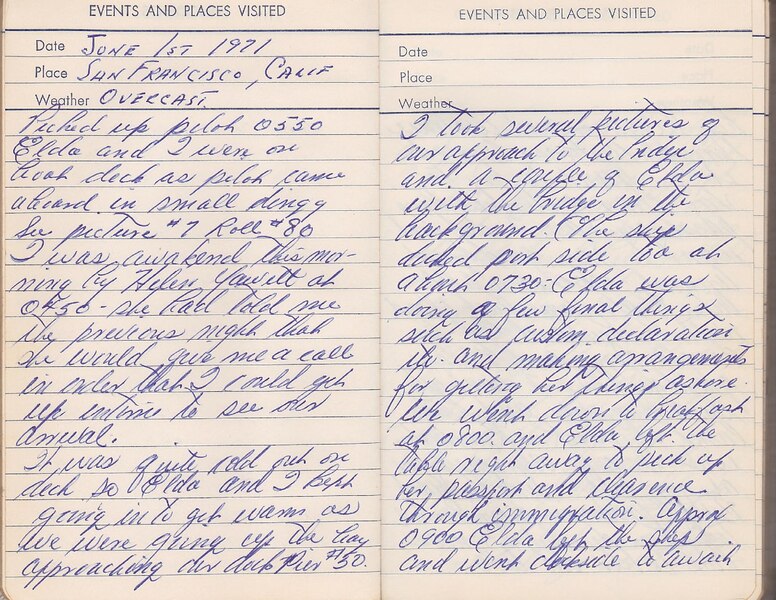 EVENTS AND PLACES VISITED
Date JUNE 1ST 1971
Place SAN FRANCISCO, CALIF
Weather OVERCAST
Picked up pilot 0550
Elda and I were on
boat deck as pilot came
aboard in small dingy
See picture #7 Roll #80
I was awakend this mor-
ning by Helen at
0450 - she had told me
the previous night that
she would give me a call
in order that I could get
up in time to see our
arrival.
It was quite cold out on
deck so Elda and I kept
going in to get warm as
we were going up the bay
approaching our dock Pier #50.
EVENTS AND PLACES VISITED
Date
Place
Weather
I took several pictures of
our approach to the bridge
and a couple of Elda
with the bridge in the
background. The ship
docked port side too at
about 0730 - Elda was
doing a few final things
such as custom declaration
etc. and making arrangements
for getting her things ashore.
We went down to breakfast
at 0800 and Elda left the
table right away to pick up
her passport and clearence
through immigration. Approx
0900 Elda left the ship
and went dockside to await